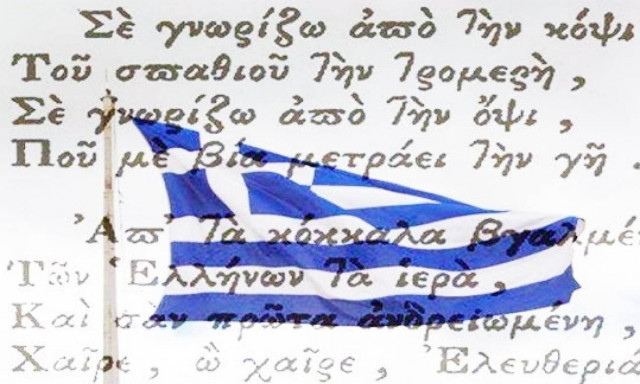 Σὲ γνωρίζω ἀπὸ τὴν κόψι
Τοῦ σπαθιοῦ τὴν τρομερὴ,
Σὲ γνωρίζω ἀπὸ τὴν ὄψι,
Ποῦ μὲ βία μετράει τὴν γῆ.
Ἀπ' τὰ κόκκαλα βγαλμέ
Τῶν Ἑλλήνων τὰ ἱερὰ,
Καὶ σὰν πρῶτα ἀνδρειωμένη,
Χαῖρε, ὢ χαῖρε, Ἐλευθεριά